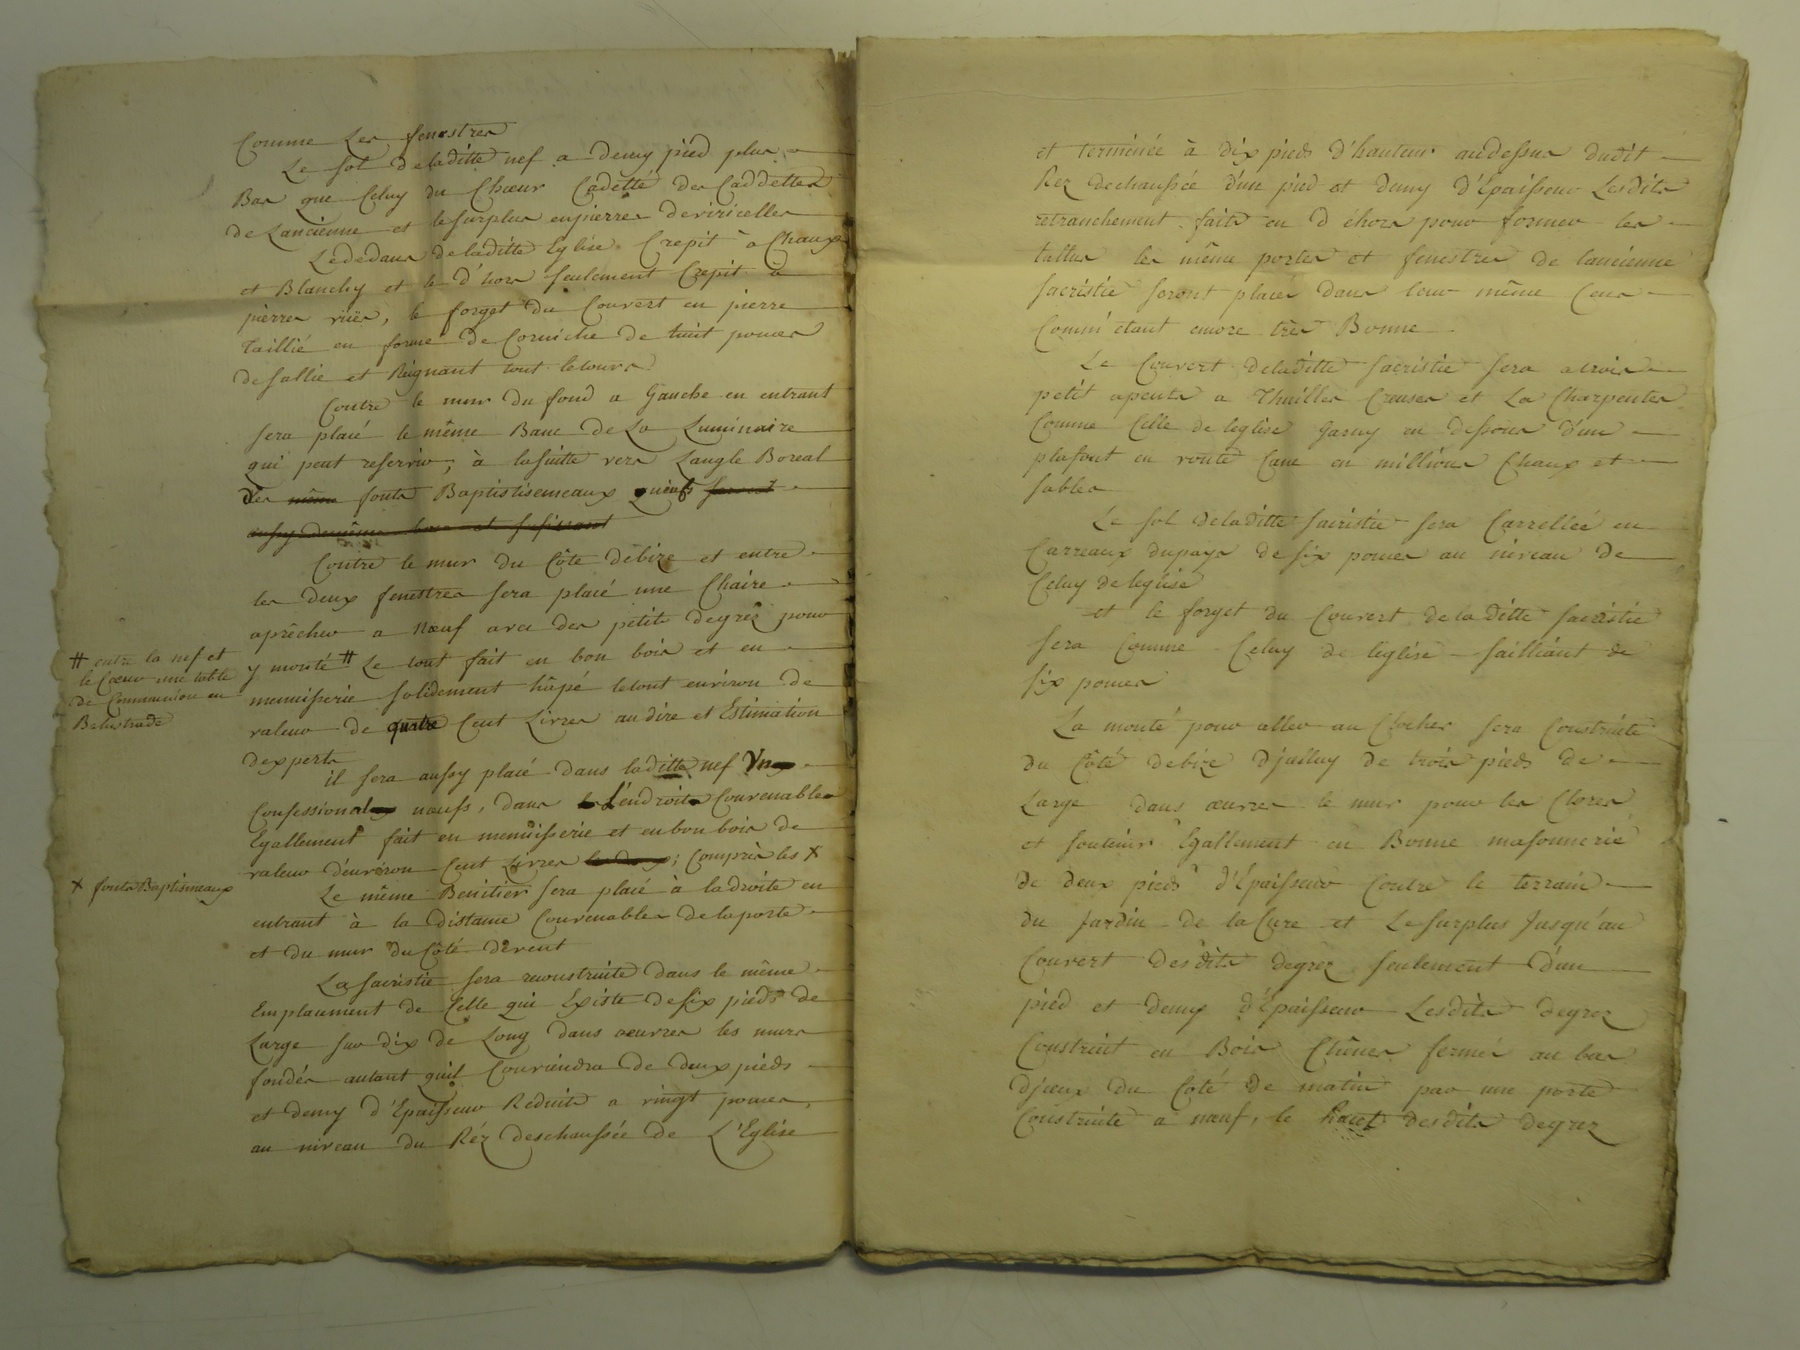 Comme Les fenestres
Le sol de laditte nef a demy pied plus
Bas que Celuy du Chœur Cadetté des Caddettes
de Lancienne et le surplus en pierres de
Le dedans de laditte Eglise Crepit à Chaux
et Blanchy et le d'hors seulement Crepit à
pierres vües, le forget du Couvert en pierre
Taillié en forme de Corniche de huit pouces
de sallie et Reignant tout letours
Contre le mur du fond a Gauche en entrant
sera placé le même Banc de La Luminaire
qui peut reservir, à lasuitte vers Langle Boreal
des même fonts Baptistiseneaux nœufs seront
aussy de même
Contre le mur du Côte debize et entre
les deux fenestres sera placé une Chaire
aprêcher a Nœuf avec des petits degréz pour
y monté # Le tout fait en bon bois et en
# entre la nef et
le Cœur une table
de Communion en
Belustrade
menuisserie solidement hûpé letout environ de
valeur de quatre Cent Livres au dire et Estimation
dexperts
il sera aussy placé dans laditte nef Un
Confessional nœufs, dans L'endroits Couvenables
Egallement fait en menuisserie et en bon bois de
valeur d'environ Cent Livres les deux; Compris les X
X fonts Baptismeaux
Le même Benitier sera placé à la droite en
entrant à la distance Couvenables de la porte
et du mur du Côté devent
La sacristie sera reconstruite dans le même
Emplacement de Celle qui Existe de six pieds de
Large sur dix de Long dans œuvres les murs
fondés autant quil Conviendra de deux pieds
et demy d'Epaisseur Reduits a vingt pouces,
au niveau du Réz deschaussée de L'Eglise
et terminée à dix pieds d'hauteur audessus dudit
Rez dechaussée d'un pied et demy d'Epaisseur Lesdits
retranchement faits en d éhors pour former les
tallus les même portes et fenestres de lancienne
sacristie seront placés dans leur même Ceus
Comm' etant encore très Bonne
Le Couvert de laditte sacristie sera a trois
petit apents a Thuilles Creuses et La Charpentes
Comme Celle de leglise garny en dessous d'un
plafont en voute Cane en millions Chaux et
sables
Le sol de laditte sacristie sera Carrellée en
Carreaux dupays de six pouces au niveau de
Celuy de leglise
et le forget du Couvert de la ditte sacristie
sera Comme Celuy de leglise sailliant de
six pouces
La monté pour aller au Clocher sera Construite
du Côté debize Djcelluy de trois pieds de
Large dans œuvres le mur pour les Clores
et soutenir Egallement en Bonne masonnerie
de deux pieds d'Epaisseur Contre le terrain
du Jardin de la Cure et Le surplus Jusqu'au
Couvert desdits degrez seulement d'un
pied et demy d'Epaisseur Lesdits degrez
Construit en Bois Chênes fermés au bas
Djceux du Coté de matin par une porte
Construite a nœuf, le haut desdits degrez